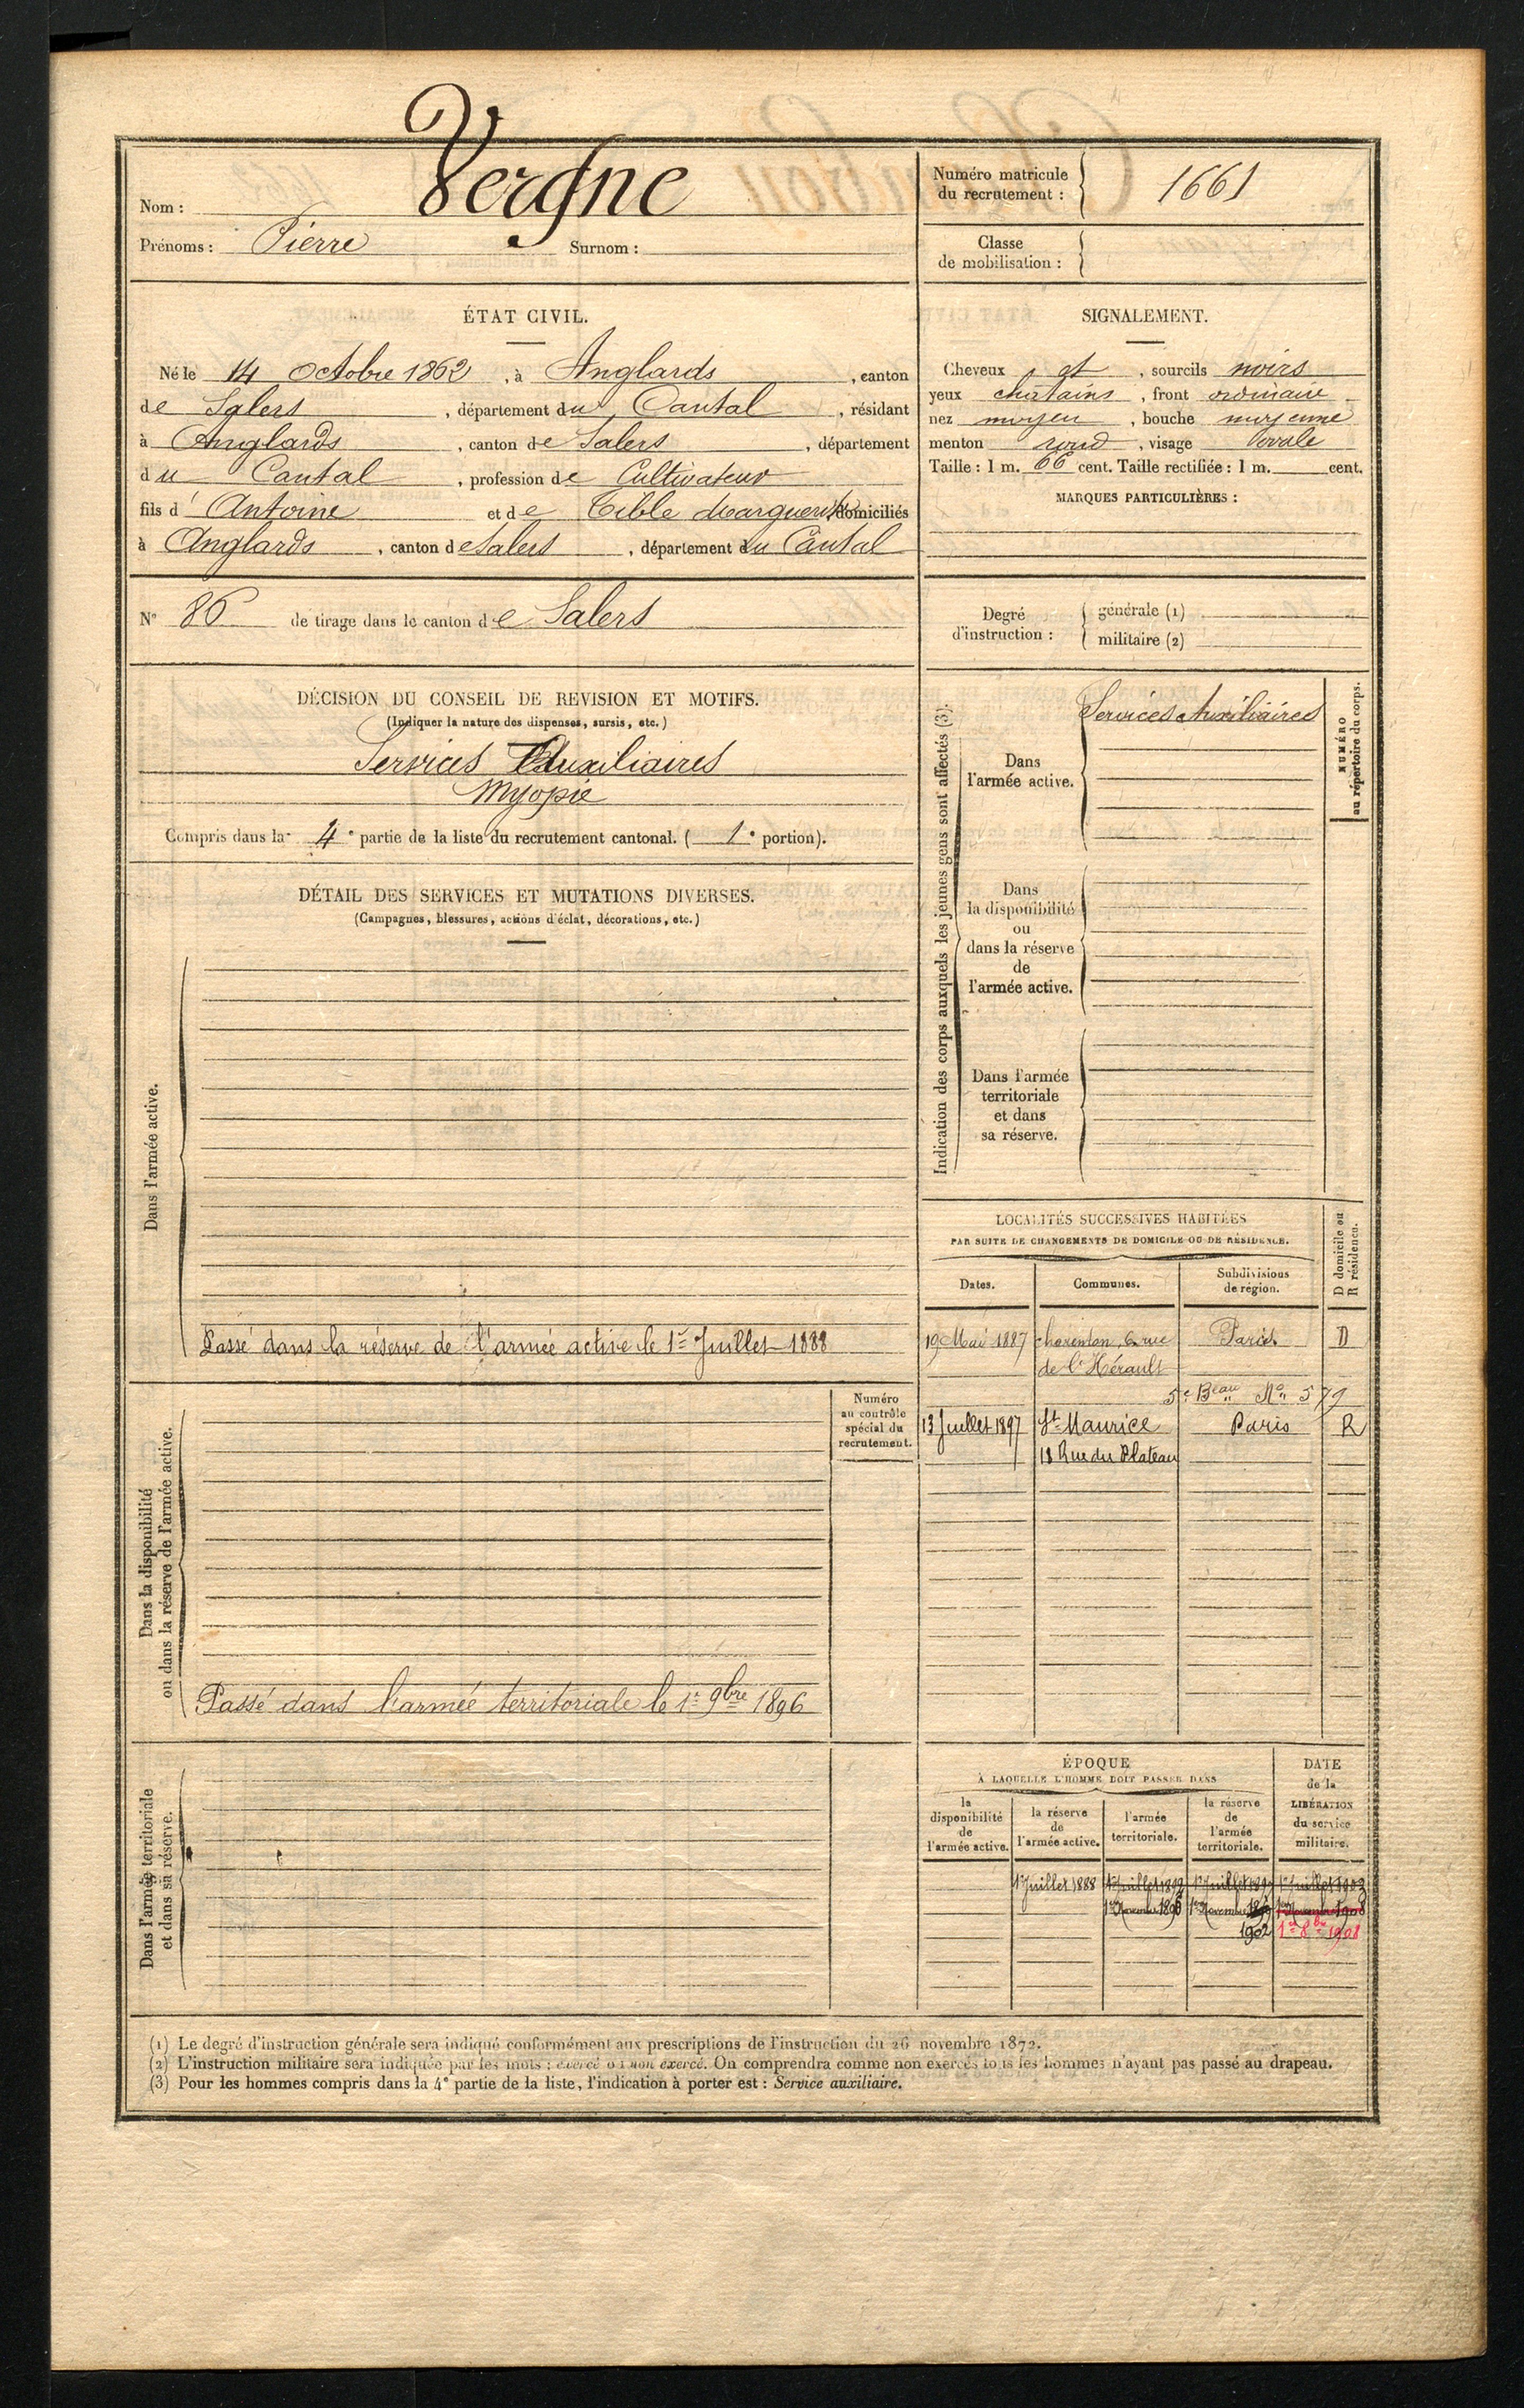 Nom : Vergne
Prénoms : Pierre Surnom :
Numéro matricule
du recrutement : 1661
Classe
de mobilisation :
ÉTAT CIVIL.
Né le 14 Octobre 1862, à Anglards, canton
de Salers, département du Cantal, résidant
à Anglards, canton de Salers, département
du Cantal, profession de Cultivateur
fils d'Antoine et de Tible Marguerite, domiciliés
à Anglards, canton de Salers, département du Cantal
SIGNALEMENT.
Cheveux et, sourcils noirs
yeux chatains, front ordinaire
nez moyen, bouche moyenne
menton rond, visage ovale
Taille : 1 m. 66 cent. Taille rectifiée : 1 m. cent.
MARQUES PARTICULIÈRES :
N° 86 de tirage dans le canton de Salers
Degré
d'instruction :
générale (1)
militaire (2)
DÉCISION DU CONSEIL DE REVISION ET MOTIFS.
(Indiquer la nature des dispenses, sursis, etc.)
Services Auxiliaires
Myopie
Compris dans la 4e partie de la liste du recrutement cantonal. ( 1e portion).
DÉTAIL DES SERVICES ET MUTATIONS DIVERSES.
(Campagnes, blessures, actions d'éclat, décorations, etc.)
Dans l'armée active.
Passé dans la réserve de l'armée active le 1er Juillet 1888
Dans la disponibilité
ou dans la réserve de l'armée active.
Numéro
au contrôle
spécial du
recrutement.
Passé dans l'armée territoriale le 1er 9bre 1896
Dans l'armée territoriale
et dans sa réserve.
Indication des corps auxquels les jeunes gens sont affectés (3).
Services Auxiliaires
Dans
l'armée active.
Dans
la disponibilité
ou
dans la réserve
de
l'armée active.
Dans l'armée
territoriale
et dans
sa réserve.
NUMÉRO
au répertoire du corps.
LOCALITÉS SUCCESSIVES HABITÉES
PAR SUITE DE CHANGEMENTS DE DOMICILE OU DE RÉSIDENCE.
Dates. Communes. Subdivisions
de région.
D domicile ou
R résidence.
19 Mai 1887 Charenton, 6 rue Paris D
de l'Hérault
5e Beau No 579
13 Juillet 1897 St Maurice Paris R
18 Rue du Plateau
ÉPOQUE
À LAQUELLE L'HOMME DOIT PASSER DANS
la
disponibilité
de
l'armée active.
la réserve
de
l'armée active.
l'armée
territoriale.
la réserve
de
l'armée
territoriale.
DATE
de la
LIBÉRATION
du service
militaire.
1er Juillet 1888 1er Juillet 1892 1er Juillet 1899 1er Juillet 1903
1er Novembre 1896 1er Novembre 1er Novembre 1908
1902 1er 8bre 1908
(1) Le degré d'instruction générale sera indiqué conformément aux prescriptions de l'instruction du 26 novembre 1872.
(2) L'instruction militaire sera indiquée par les mots : exercé ou non exercé. On comprendra comme non exercés tous les hommes n'ayant pas passé au drapeau.
(3) Pour les hommes compris dans la 4e partie de la liste, l'indication à porter est : Service auxiliaire.